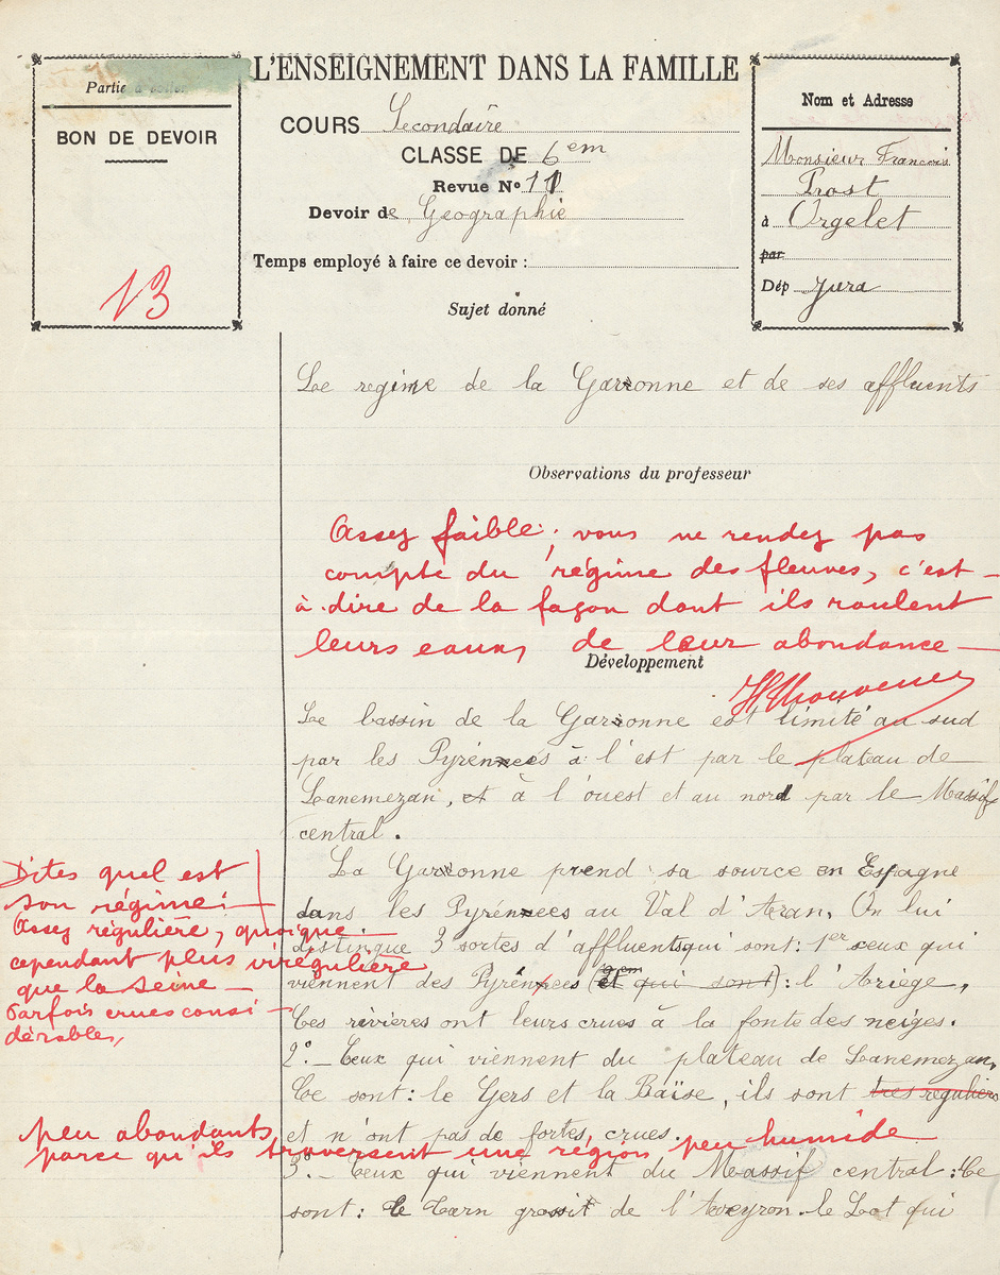 Partie à coller
BON DE DEVOIR
13
L'ENSEIGNEMENT DANS LA FAMILLE
COURS Secondaire
CLASSE DE 6em
Revue No 11
Devoir de Geographie
Temps employé à faire ce devoir :
Nom et Adresse
Monsieur Francois
Prost
à Orgelet
par
Dép Jura
Sujet donné
Le regime de la Garonne et de ses affluents
Observations du professeur
Assez faible ; vous ne rendez pas
compte du régime des fleuves, c'est-
à-dire de la façon dont ils roulent
leurs eaux, de leur abondance —
Développement
Le bassin de la Garonne est limité au sud
par les Pyrénées à l'est par le plateau de
Lanemezan, et à l'ouest et au nord par le Massif
central.
La Garonne prend sa source en Espagne
dans les Pyrénnees au Val d'Aran. On lui
distingue 3 sortes d'affluents qui sont: 1er ceux qui
viennent des Pyrénnees (et qui sont): l'Ariège,
Ces rivières ont leurs crues à la fonte des neiges.
2°. — Ceux qui viennent du plateau de Lanemezan,
Ce sont: le Gers et la Baïse, ils sont tres reguliers
et n'ont pas de fortes crues.
3°. — Ceux qui viennent du Massif central: Ce
sont: le Tarn grossit de l'Aveyron. le Lot qui
Dites quel est
son régime :
Assez régulière, quoique
cependant plus irrégulière
que la Seine —
Parfois crues consi-
dérables,
peu abondants,
parce qu'ils traversent une région peu humide